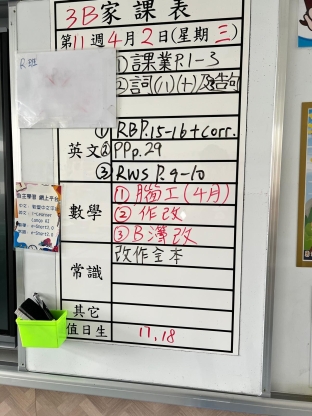 3B家課表
第11週4月2日(星期三)
R班
①課業P.1-3
②詞(八)(十)及造句
英文
①RBP.15-16+corr.
②PPp.29
③RWS P.9-10
數學
①腦工(4月)
②作改
③B簿改
常識
改作全本
其它
值日生 17,18
自主學習 網上平台